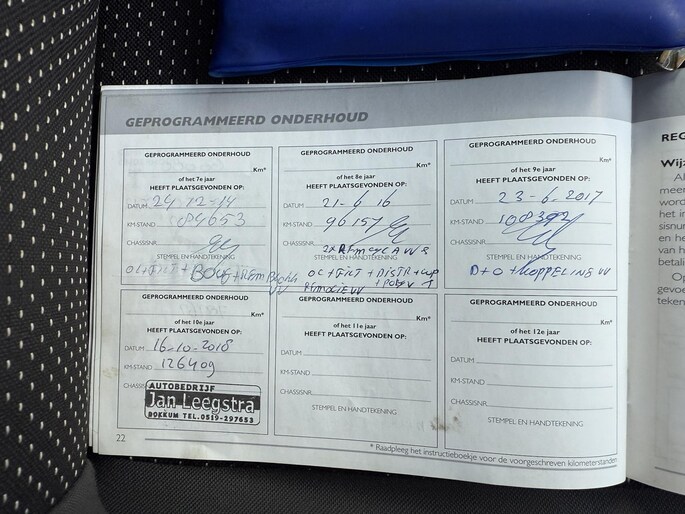 GEPROGRAMMEERD ONDERHOUD
GEPROGRAMMEERD ONDERHOUD
Km*
of het 7e jaar
HEEFT PLAATSGEVONDEN OP:
DATUM 24-12-14
KM-STAND 84653
CHASSISNR.
STEMPEL EN HANDTEKENING
GEPROGRAMMEERD ONDERHOUD
Km*
of het 8e jaar
HEEFT PLAATSGEVONDEN OP:
DATUM 21-6 16
KM-STAND 96157
CHASSISNR.
STEMPEL EN HANDTEKENING
OC + FILT + DISTR +
GEPROGRAMMEERD ONDERHOUD
Km*
of het 9e jaar
HEEFT PLAATSGEVONDEN OP:
DATUM 23-6-2017
KM-STAND 108392
CHASSISNR.
STEMPEL EN HANDTEKENING
O + O + KOPPELING VV
GEPROGRAMMEERD ONDERHOUD
Km*
of het 10e jaar
HEEFT PLAATSGEVONDEN OP:
DATUM 16-10-2018
KM-STAND 126409
AUTOBEDRIJF
Jan Leegstra
DOKKUM TEL.0519-297653
GEPROGRAMMEERD ONDERHOUD
Km*
of het 11e jaar
HEEFT PLAATSGEVONDEN OP:
DATUM
KM-STAND
CHASSISNR.
STEMPEL EN HANDTEKENING
GEPROGRAMMEERD ONDERHOUD
Km*
of het 12e jaar
HEEFT PLAATSGEVONDEN OP:
DATUM
KM-STAND
CHASSISNR.
STEMPEL EN HANDTEKENING
22
* Raadpleeg het instructieboekje voor de voorgeschreven kilometerstanden
REG
Wij